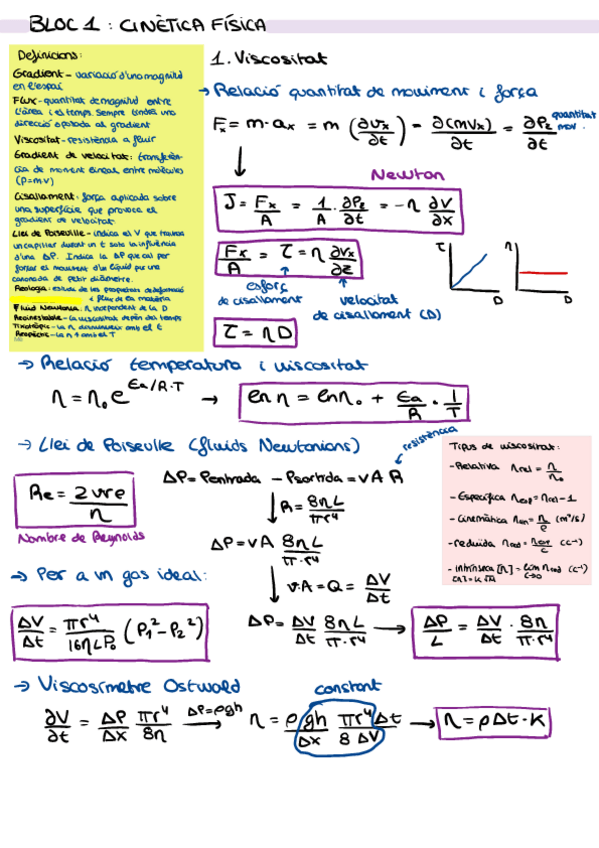 BLOC 1 : CINÈTICA FÍSICA
Definicions:
Gradient - variació d'una magnitud
en l'espai
Flux - quantitat de magnitud entre
l'àrea i el temps. Sempre tindrà una
direcció oposada al gradient
Viscositat - resistència a fluir
Gradient de velocitat: transferèn-
cia de moment lineal entre molècules
(P=mv)
Cisallament: força aplicada sobre
una superfície que provoca el
gradient de velocitat.
Llei de Poiseville - indica el V que travessa
un capilar durant un t sota la influència
d'una ΔP. Indica la ΔP que cal per
forçar el moviment d'un líquid per una
canonada de petit diàmetre.
Reologia: estudi de les propietats de deformació
i flux de la matèria
Fluid Newtonià: η independent de la D
Reoinestable - la viscositat depèn del temps
Tixotròpic - la η disminueix amb el t
Reopèctic - la η ↑ amb el T
1. Viscositat
→ Relació quantitat de moviment i força
Fx = m · ax = m (∂vx/∂t) = ∂(mvx)/∂t = ∂Pz/∂t quantitat mov.
Newton
J = Fx/A = 1/A · ∂Pz/∂t = -η ∂V/∂x
Fx/A = τ = η ∂vx/∂z
esforç de cisallament
velocitat de cisallament (D)
τ = ηD
τ
D
η
D
→ Relació temperatura i viscositat
η = η₀ e^(Ea/R·T) → ln η = ln η₀ + Ea/R · 1/T
→ Llei de Poiseulle (fluids Newtonians)
resistència
ΔP = Pentrada - Psortida = v A R
Re = 2vrρ/η
Nombre de Reynolds
↓ R = 8ηL/πr⁴
ΔP = vA 8ηL/π·r⁴
↓ v·A = Q = ΔV/Δt
ΔP = ΔV/Δt 8ηL/π·r⁴ → ΔP/L = ΔV/Δt · 8η/π·r⁴
Tipus de viscositat:
- Relativa ηrel = η/η₀
- Específica ηesp = ηrel - 1
- Cinemàtica ηcin = η/ρ (m²/s)
- reduïda ηred = ηesp/c (c⁻¹)
- intrínseca [η] = lim c→0 ηred (c⁻¹)
→ Per a un gas ideal:
ΔV/Δt = πr⁴/16ηLP₀ (P₁² - P₂²)
→ Viscosímetre Ostwold
constant
∂V/∂t = ΔP/Δx πr⁴/8η ΔP=ρgh → η = ρgh/Δx πr⁴/8ΔV Δt → η = ρΔt·K